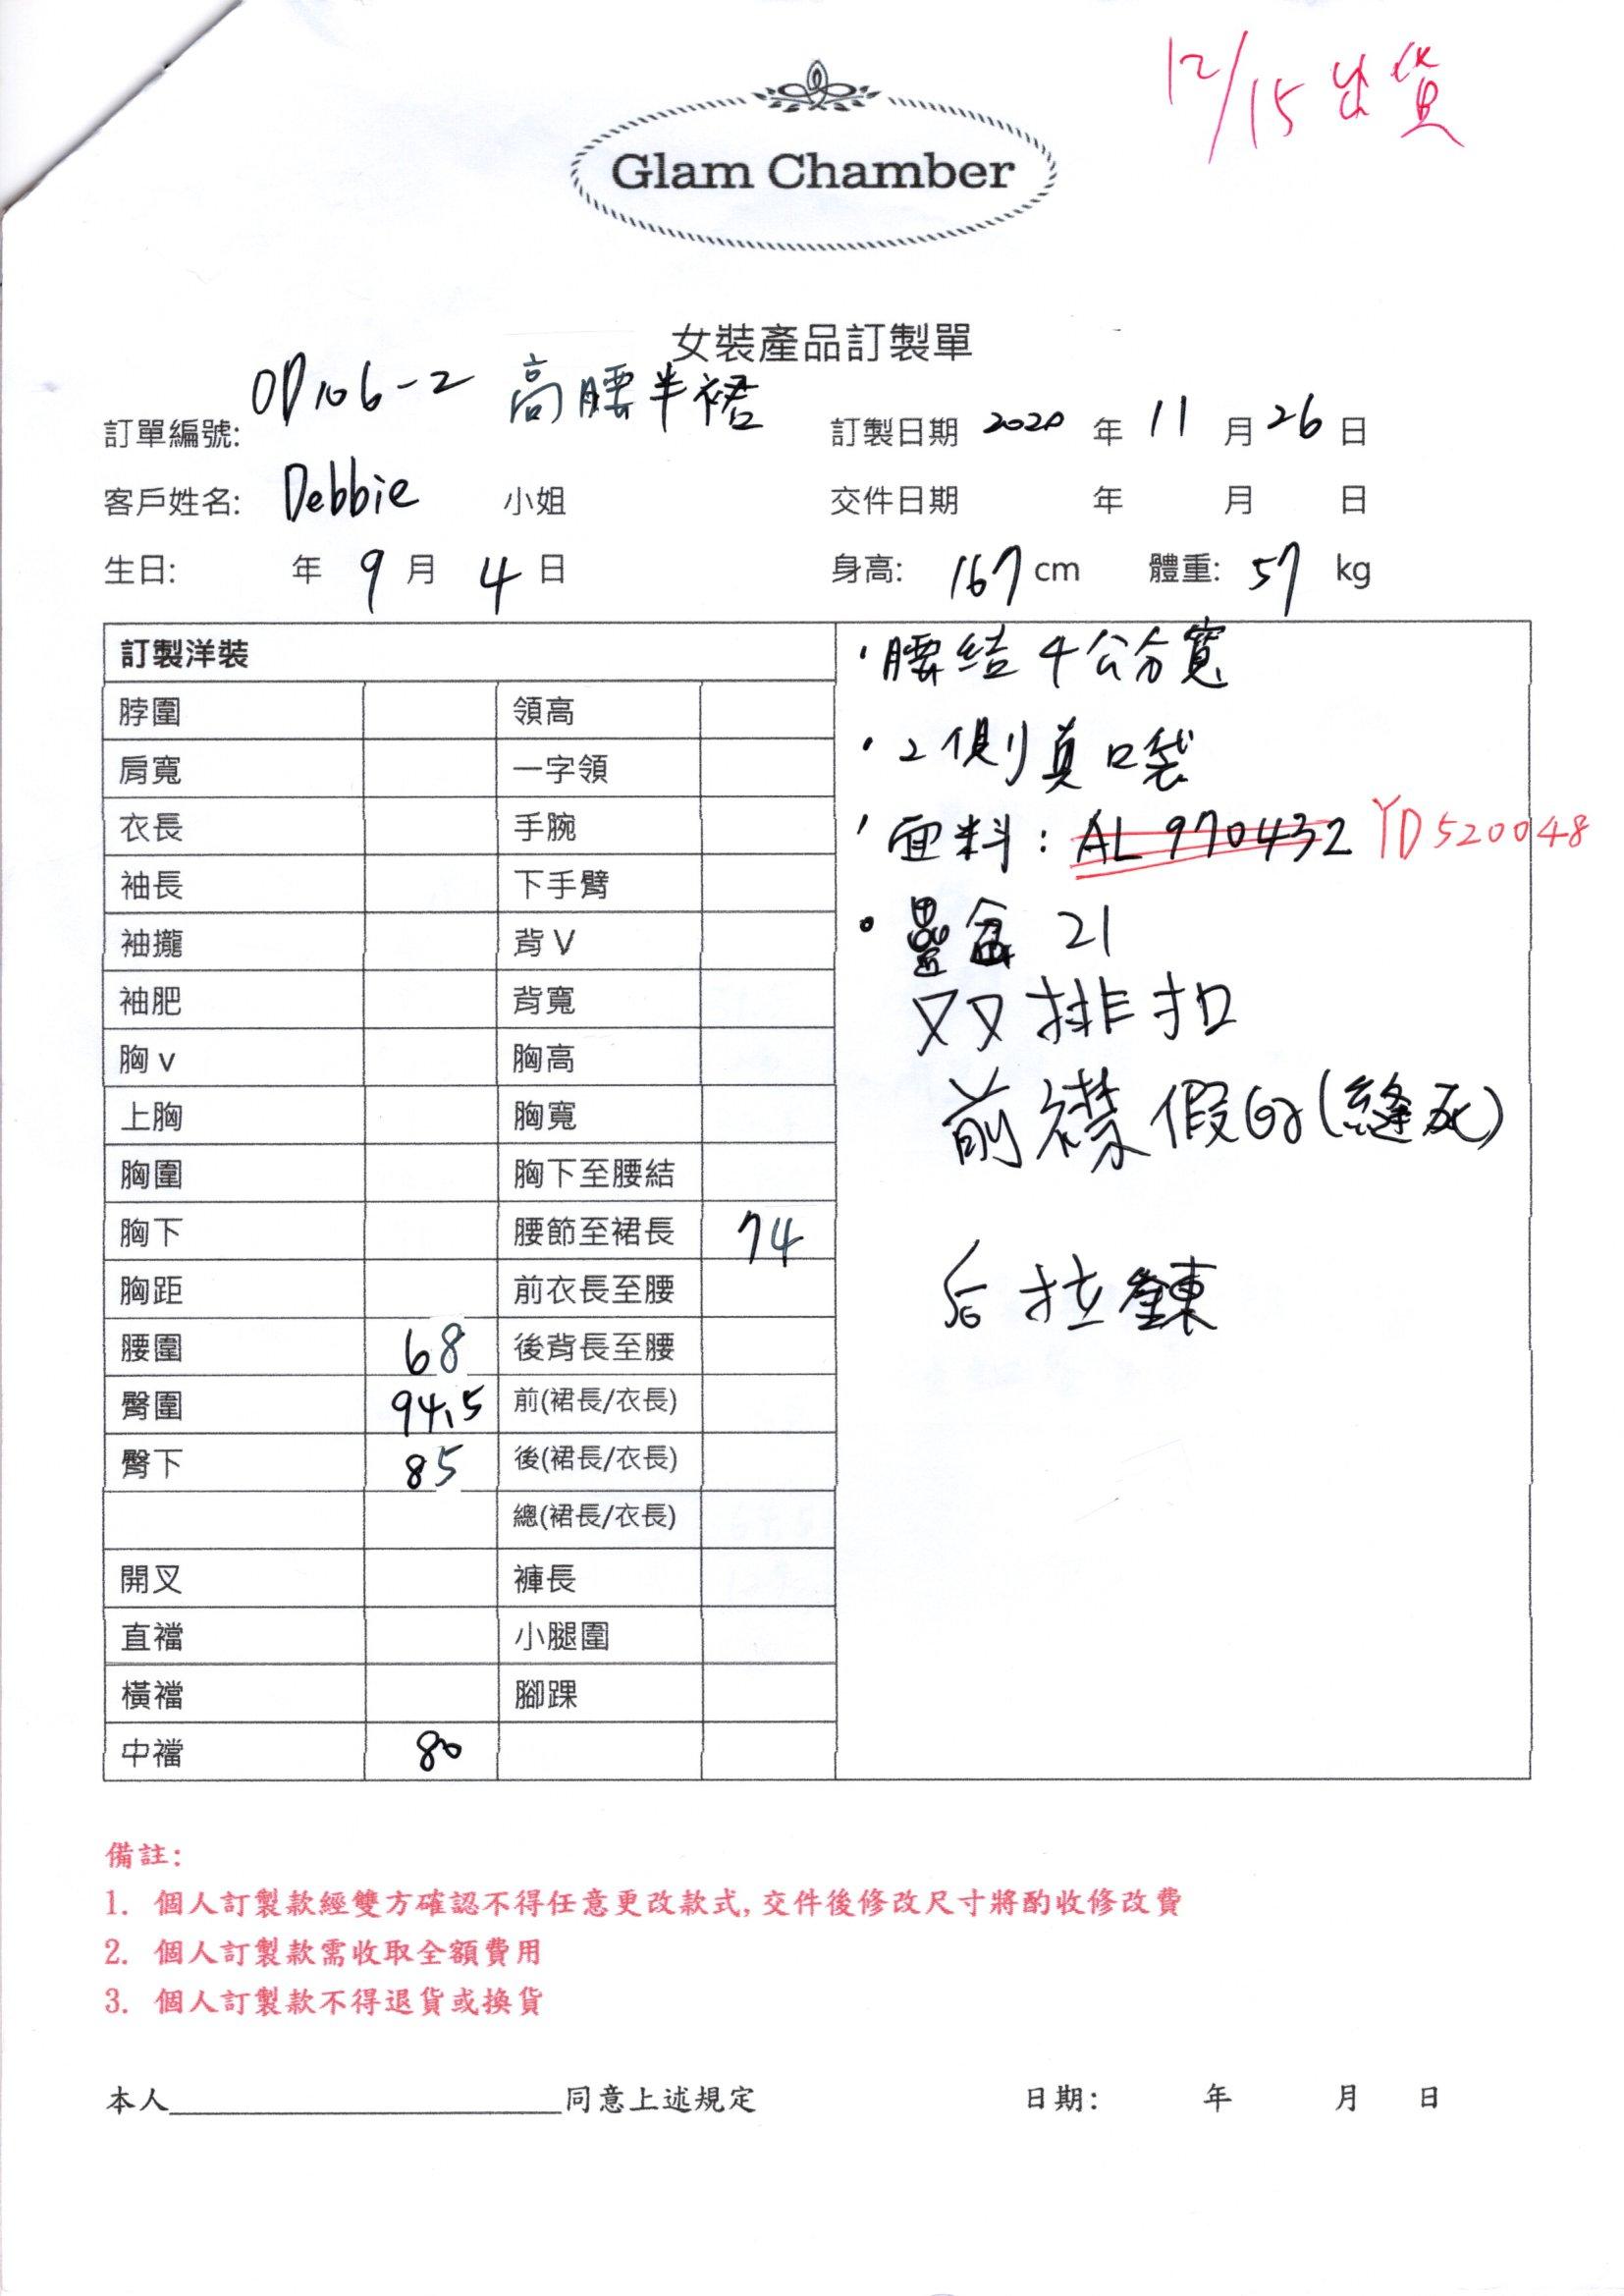 12/15出貨
Glam Chamber
女裝產品訂製單
訂單編號: OP106-2 高腰半裙 訂製日期 2020 年 11 月 26 日
客戶姓名: Debbie 小姐 交件日期 年 月 日
生日: 年 9 月 4 日 身高: 167 cm 體重: 57 kg
訂製洋裝
脖圍 領高
肩寬 一字領
衣長 手腕
袖長 下手臂
袖攏 背V
袖肥 背寬
胸v 胸高
上胸 胸寬
胸圍 胸下至腰結
胸下 腰節至裙長 74
胸距 前衣長至腰
腰圍 68 後背長至腰
臀圍 94.5 前(裙長/衣長)
臀下 85 後(裙長/衣長)
總(裙長/衣長)
開叉 褲長
直襠 小腿圍
橫襠 腳踝
中襠 80
·腰結4公分寬
·2側真口袋
·面料:AL970432 YD520048
·疊盒 21
双排扣
前襟假的(縫死)
后拉鍊
備註:
1. 個人訂製款經雙方確認不得任意更改款式,交件後修改尺寸將酌收修改費
2. 個人訂製款需收取全額費用
3. 個人訂製款不得退貨或換貨
本人 同意上述規定 日期: 年 月 日